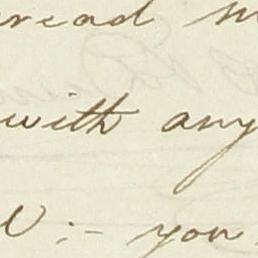 read
with any
:- you